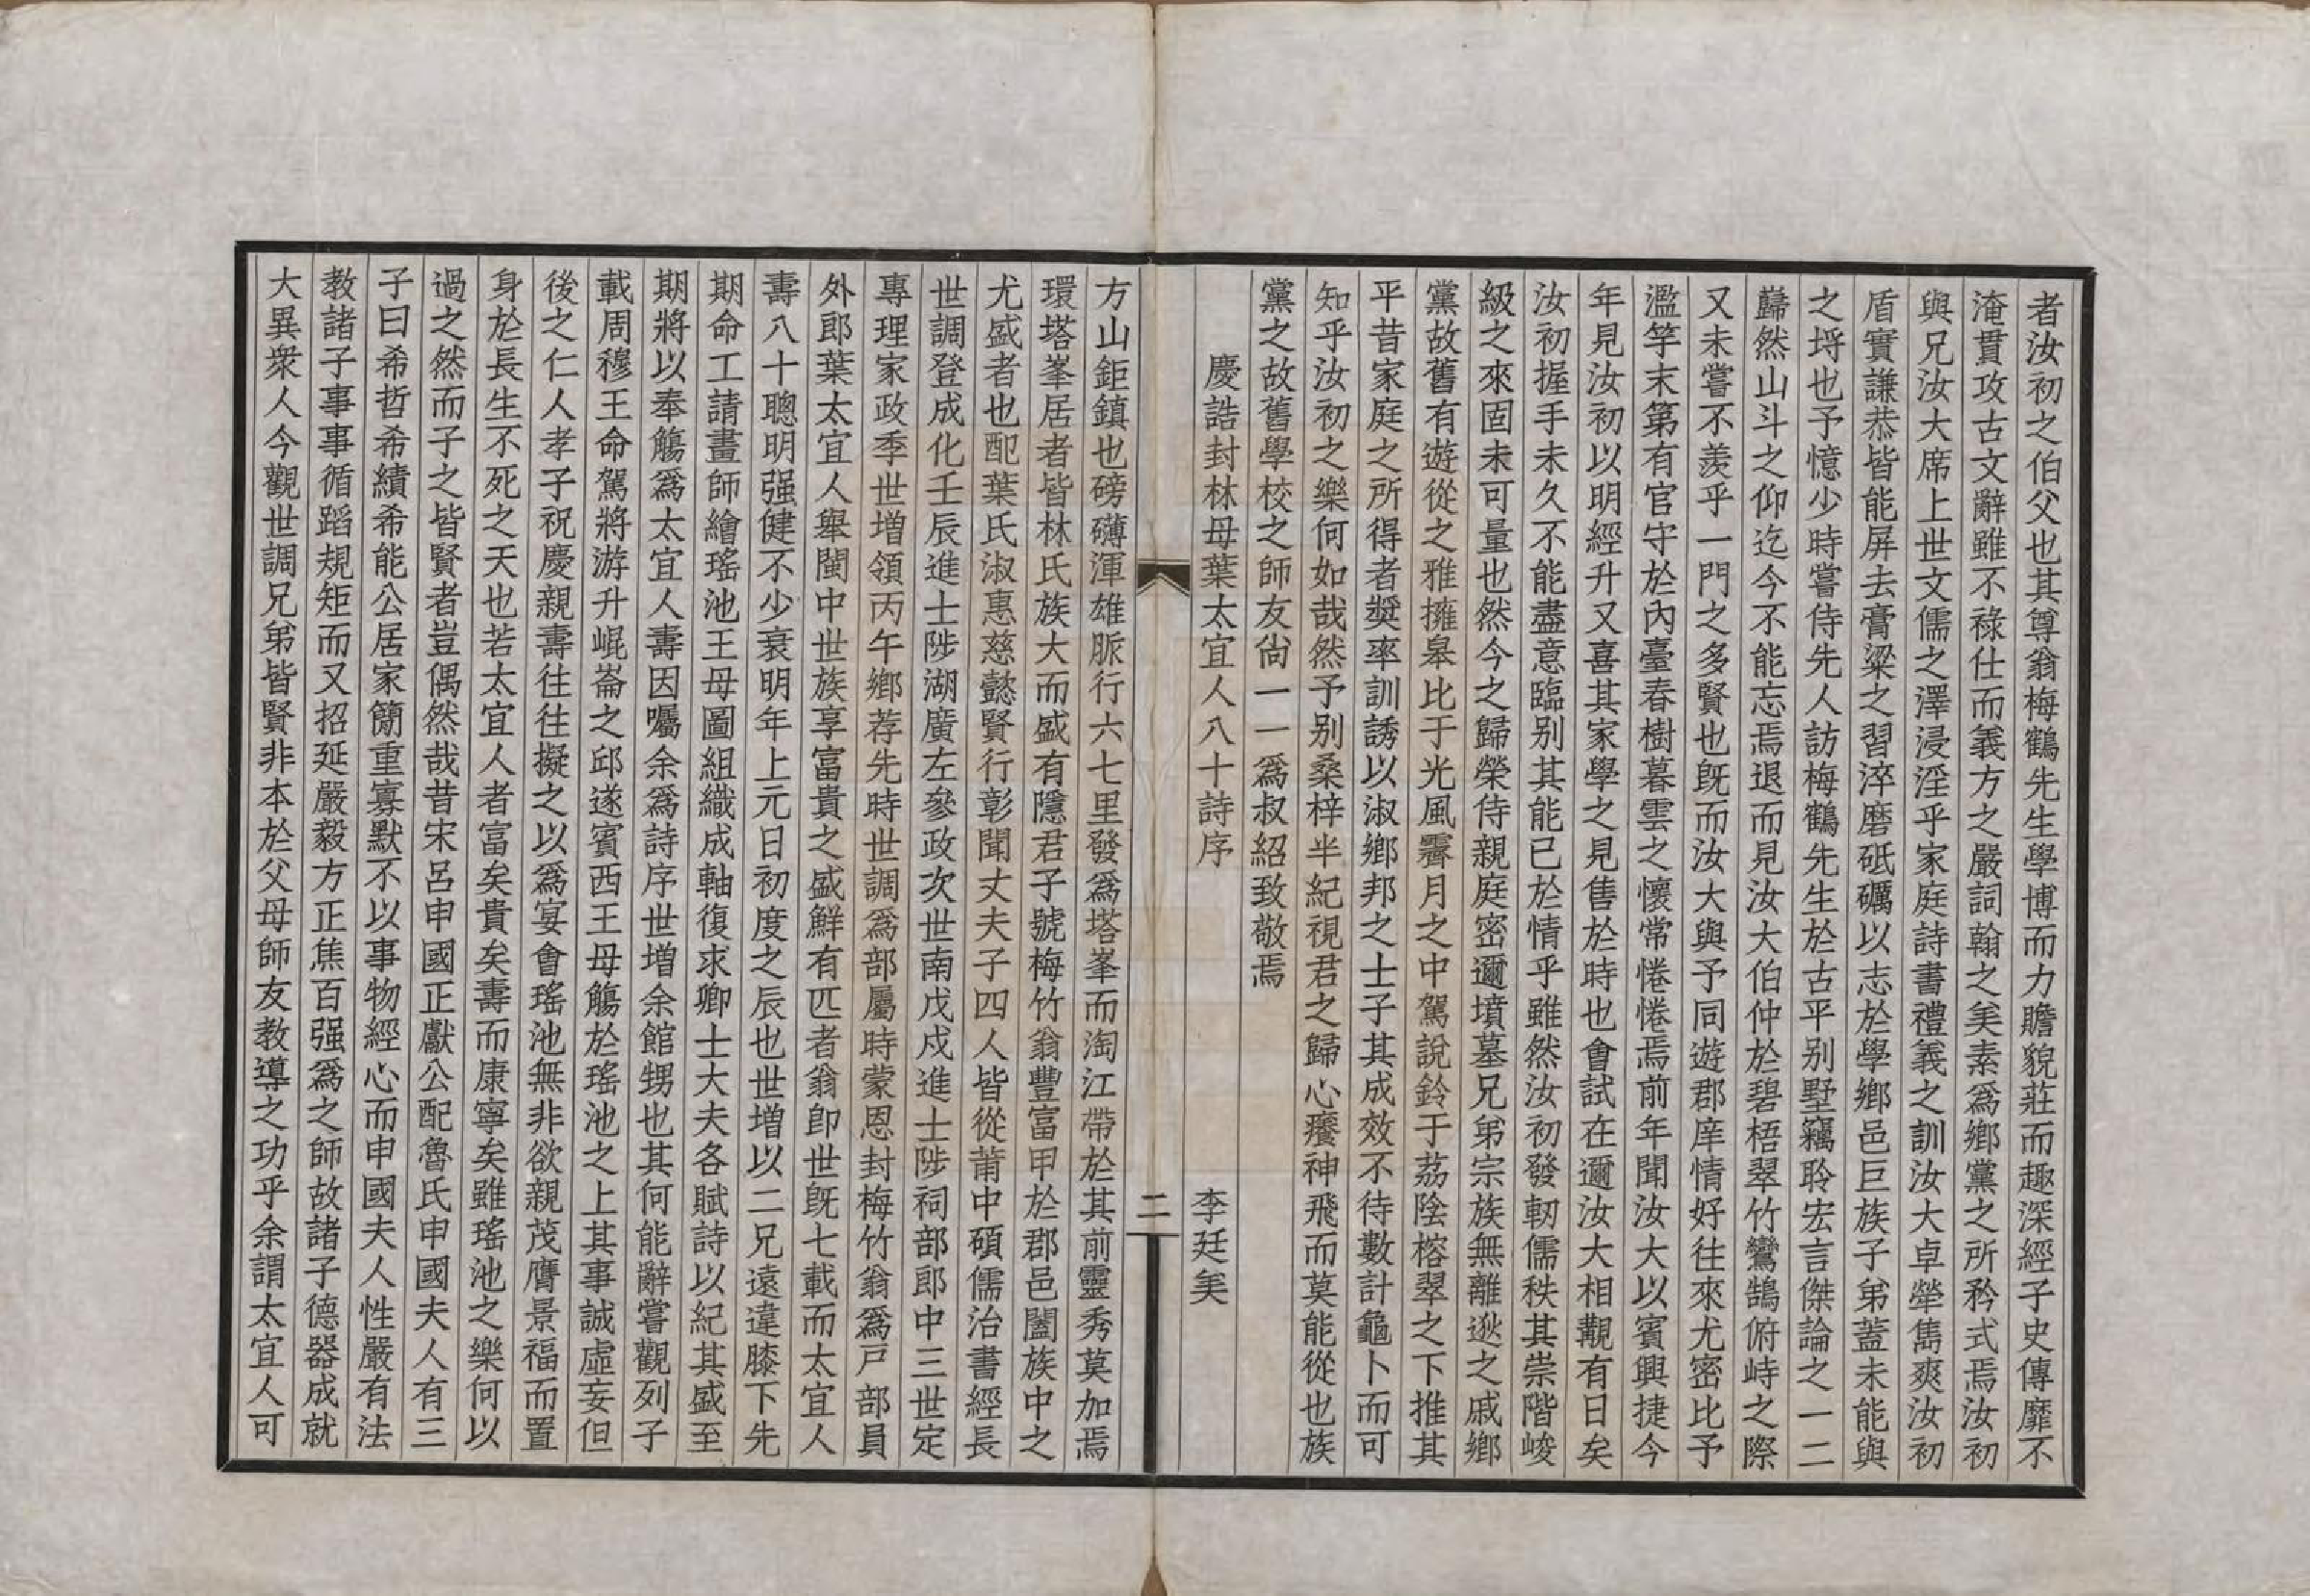 者汝初之伯父也其尊翁梅鶴先生學博而力贍貌莊而趣深經子史傳靡不
淹貫攻古文辭雖不祿仕而義方之嚴詞翰之美素爲鄉黨之所矜式焉汝初
與兄汝大席上世文儒之澤浸淫乎家庭詩書禮義之訓汝大卓犖雋爽汝初
盾實謙恭皆能屏去膏粱之習淬磨砥礪以志於學鄉邑巨族子弟蓋未能與
之埒也予憶少時嘗侍先人訪梅鶴先生於古平别墅竊聆宏言傑論之一二
巋然山斗之仰迄今不能忘焉退而見汝大伯仲於碧梧翠竹鸞鵠俯峙之際
又未嘗不羨乎一門之多賢也旣而汝大與予同遊郡庠情好往來尤密比予
濫竽末第有官守於內臺春樹暮雲之懷常惓惓焉前年聞汝大以賓興捷今
年見汝初以明經升又喜其家學之見售於時也會試在邇汝大相覯有日矣
汝初握手未久不能盡意臨别其能已於情乎雖然汝初發軔儒秩其崇階峻
級之來固未可量也然今之歸榮侍親庭密邇墳墓兄弟宗族無離逖之戚鄉
黨故舊有遊從之雅擁皋比于光風霽月之中駕說鈴于茘陰榕翠之下推其
平昔家庭之所得者奬率訓誘以淑鄉邦之士子其成效不待數計龜卜而可
知乎汝初之樂何如哉然予别桑梓半紀視君之歸心癢神飛而莫能從也族
黨之故舊學校之師友尙一一爲叔紹致敬焉
慶誥封林母葉太宜人八十詩序 李廷美
二
方山鉅鎮也磅礴渾雄脈行六七里發爲塔峯而淘江帶於其前靈秀莫加焉
環塔峯居者皆林氏族大而盛有隱君子號梅竹翁豐富甲於郡邑闔族中之
尤盛者也配葉氏淑惠慈懿賢行彰聞丈夫子四人皆從莆中碩儒治書經長
世調登成化壬辰進士陟湖廣左參政次世南戊戌進士陟祠部郎中三世定
專理家政季世增領丙午鄉荐先時世調爲部屬時蒙恩封梅竹翁爲戸部員
外郎葉太宜人舉閩中世族享富貴之盛鮮有匹者翁卽世旣七載而太宜人
壽八十聰明强健不少衰明年上元日初度之辰也世增以二兄遠違膝下先
期命工請畫師繪瑤池王母圖組織成軸復求卿士大夫各賦詩以紀其盛至
期將以奉觴爲太宜人壽因囑余爲詩序世增余館甥也其何能辭嘗觀列子
載周穆王命駕將游升崐崙之邱遂賓西王母觴於瑤池之上其事誠虛妄但
後之仁人孝子祝慶親壽往往擬之以爲宴會瑤池無非欲親茂膺景福而置
身於長生不死之天也若太宜人者富矣貴矣壽而康寧矣雖瑤池之樂何以
過之然而子之皆賢者豈偶然哉昔宋呂申國正獻公配魯氏申國夫人有三
子曰希哲希績希能公居家簡重寡默不以事物經心而申國夫人性嚴有法
教諸子事事循蹈規矩而又招延嚴毅方正焦百强爲之師故諸子德器成就
大異衆人今觀世調兄弟皆賢非本於父母師友教導之功乎余謂太宜人可